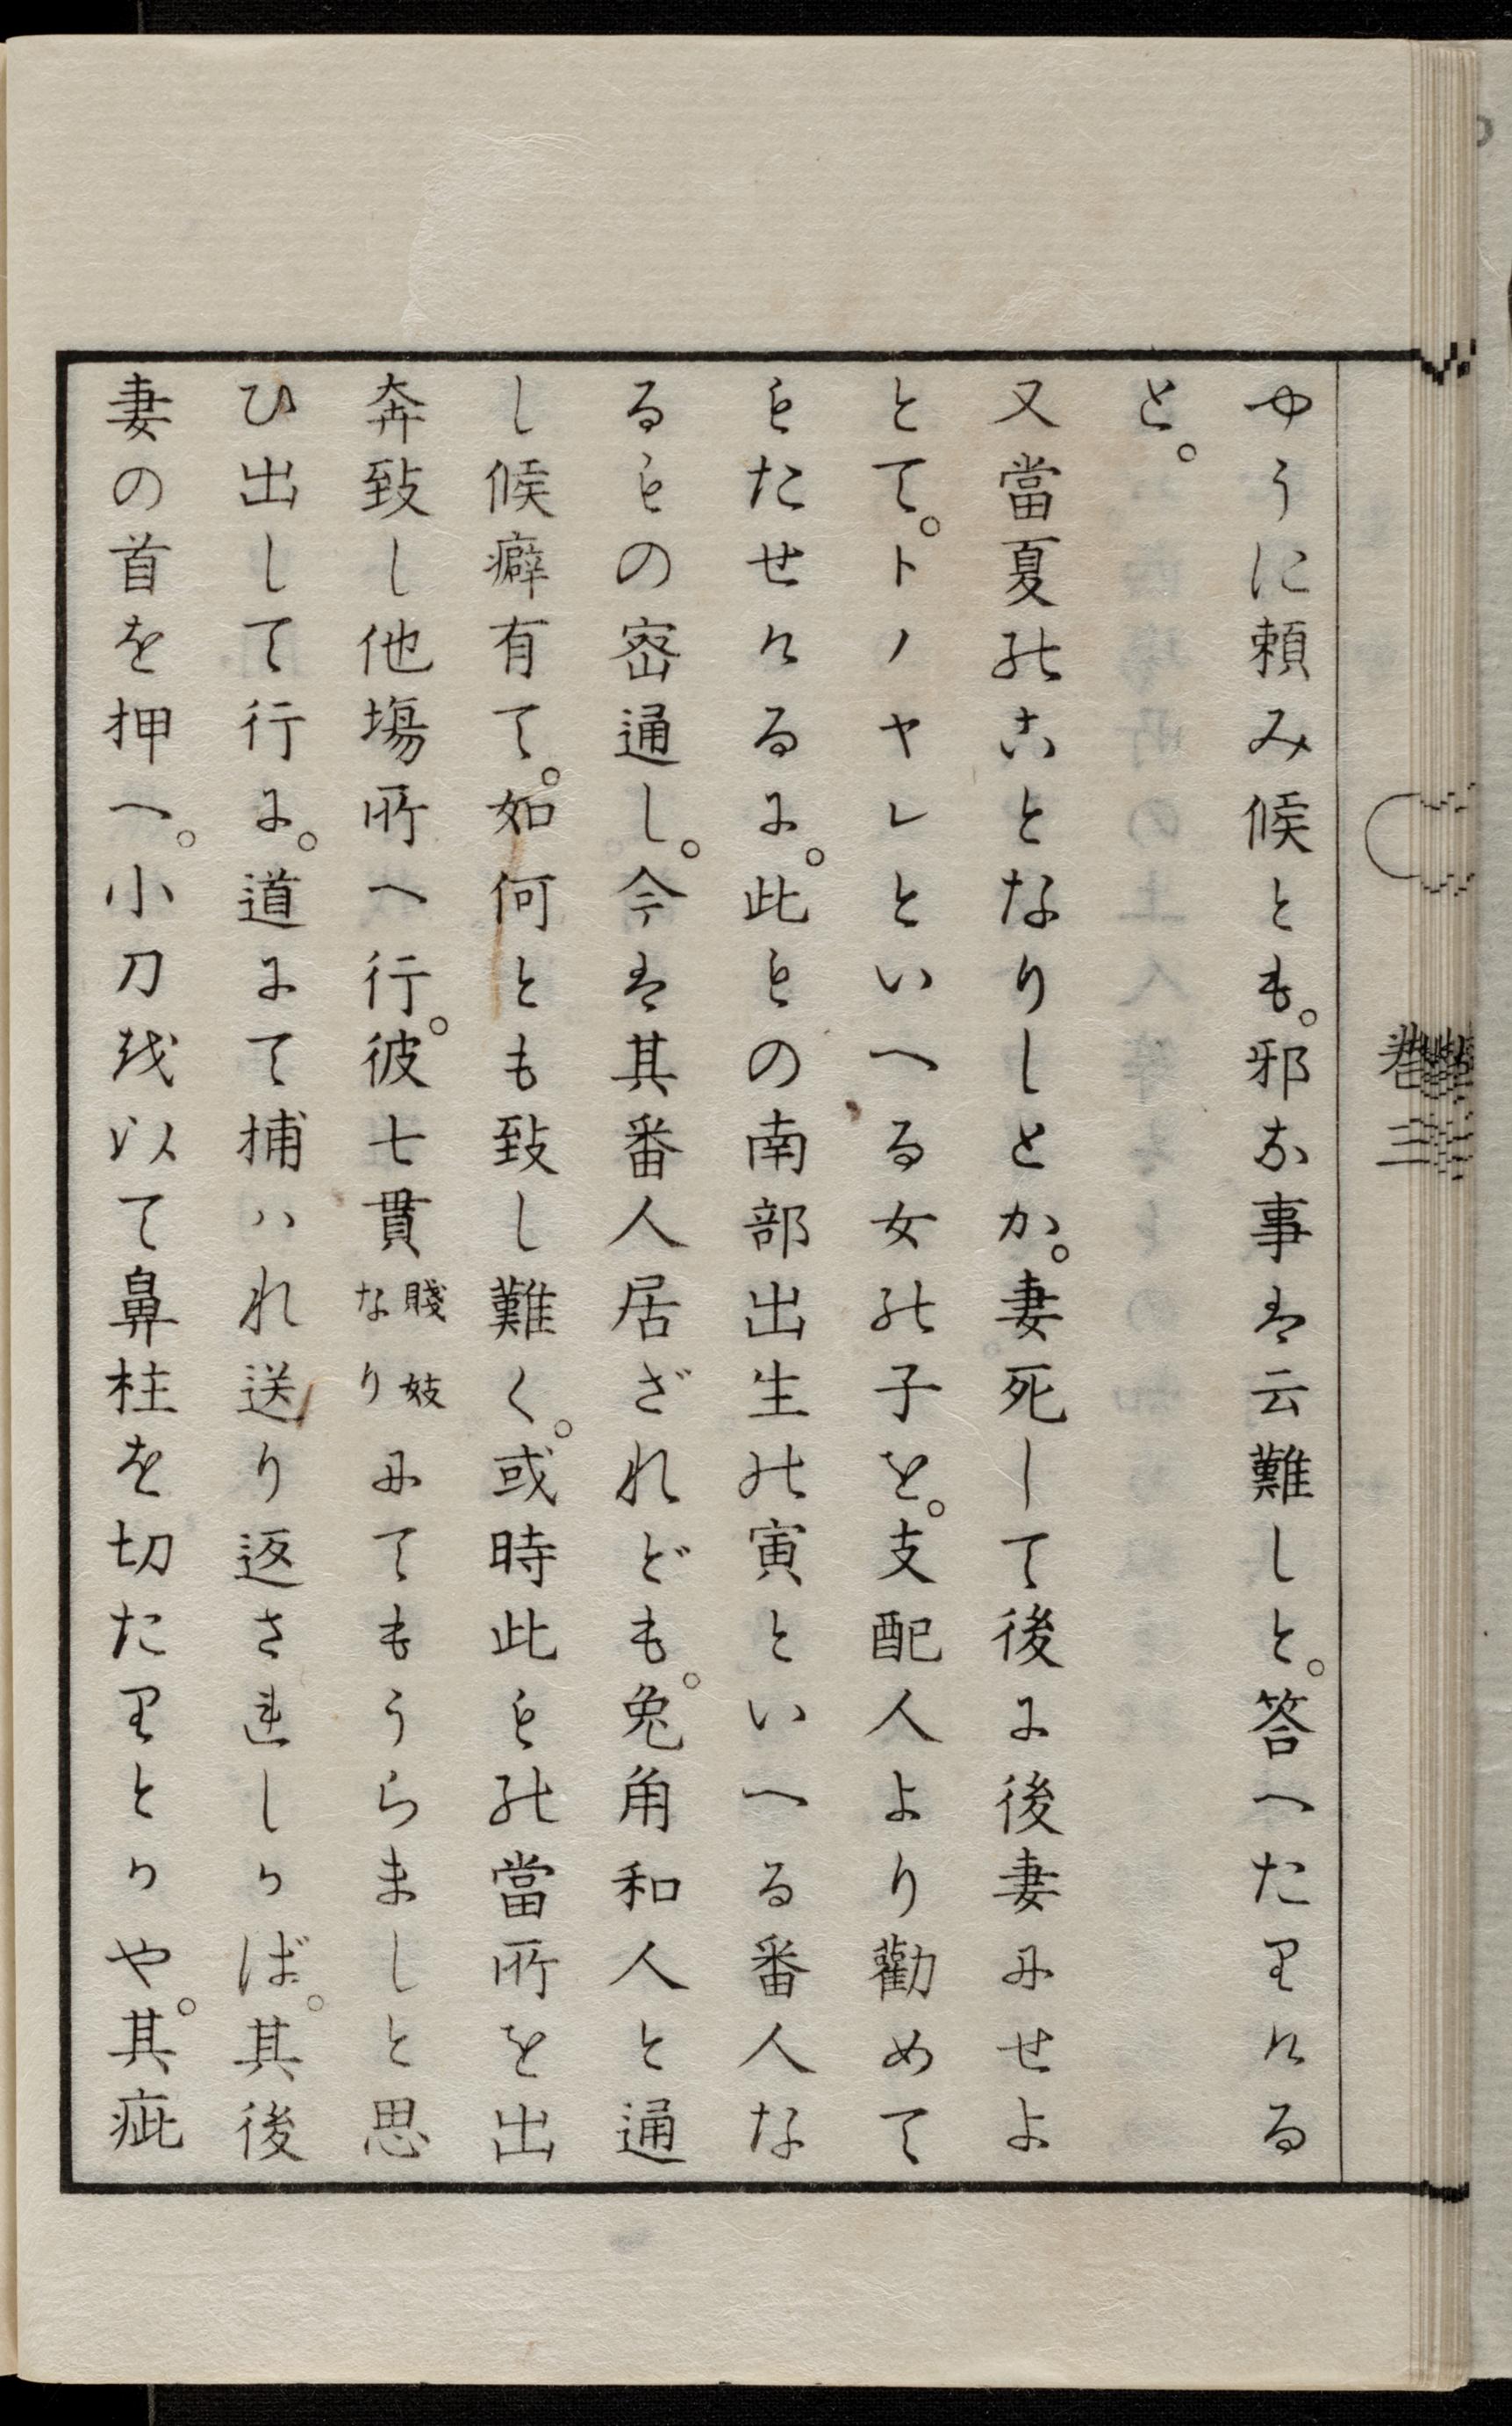 やうに頼み候とも。邪な事は云難しと。答へたりける
と。
又當夏のことなりしとか。妻死して後に後妻にせよ
とて。トノヤレといへる女の子を。支配人より勸めて
もたせけるに。此もの南部出生の寅といへる番人な
るもの密通し。今は其番人居ざれども。兔角和人と通
し候癖有て。如何とも致し難く。或時此もの當所を出
奔致し他塲所へ行。彼七貫賤妓なりにてもうらましと思
ひ出して行に。道にて捕ハれ送り返されしかば。其後
妻の首を押へ。小刀を以て鼻柱を切たりとかや。其疵
卷三